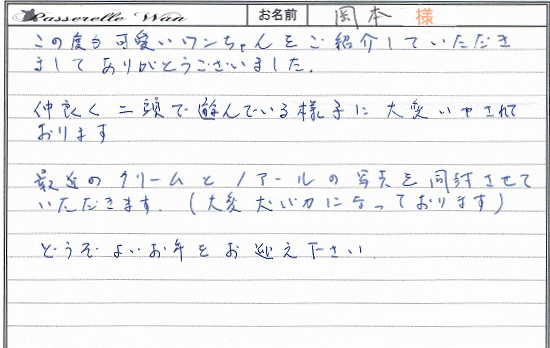 Passerelle Wan お名前 岡本 様
この度も可愛いワンちゃんをご紹介していただき
ましてありがとうございました.
仲良く二頭で遊んでいる様子に大変いやされて
おります
最近のクリームとノアールの写真を同封させて
いただきます. (大変犬バカになっております)
どうぞよいお年をお迎え下さい.